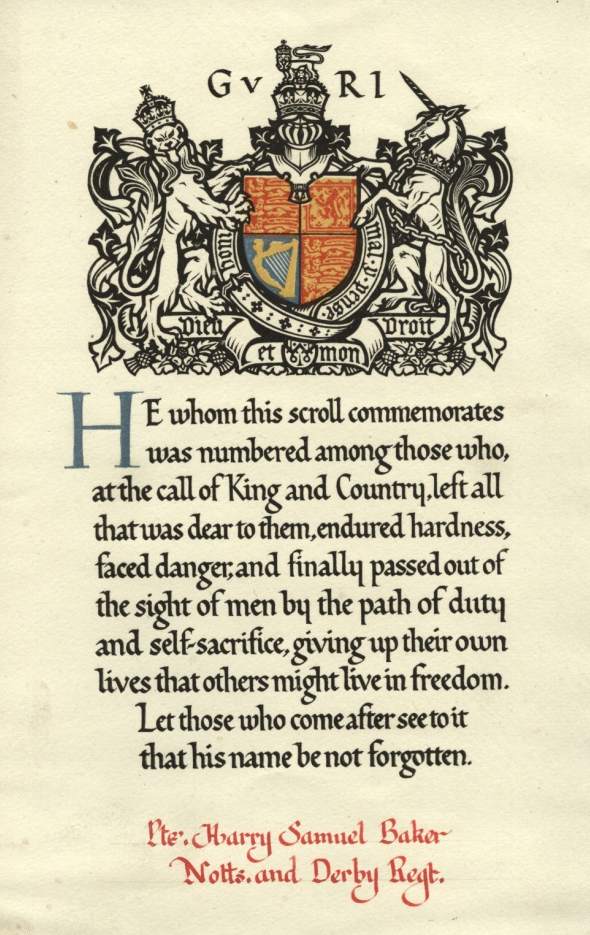 G V R I
Honi mal·y·pense
Dieu Droit
et mon
HE whom this scroll commemorates
was numbered among those who,
at the call of King and Country, left all
that was dear to them, endured hardness,
faced danger, and finally passed out of
the sight of men by the path of duty
and self-sacrifice, giving up their own
lives that others might live in freedom.
Let those who come after see to it
that his name be not forgotten.
Pte. Harry Samuel Baker
Notts. and Derby Regt.